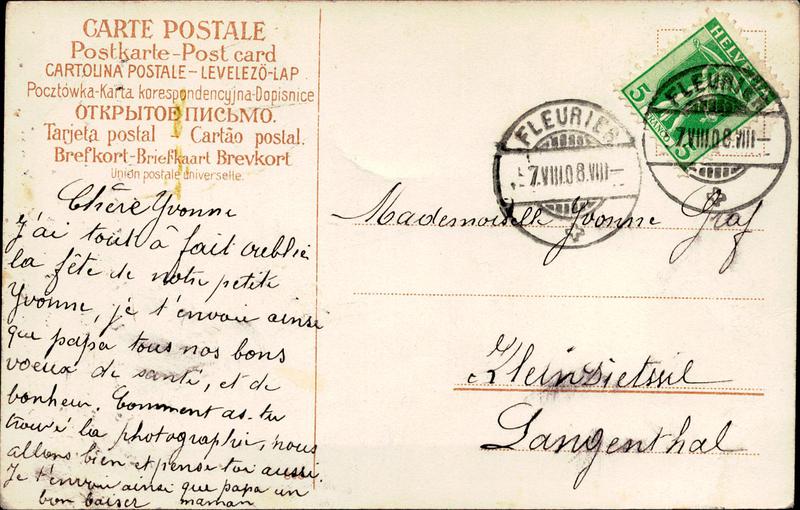 CARTE POSTALE
Postkarte-Post card
CARTOLINA POSTALE - LEVELEZŐ-LAP
Pocztówka-Karta korespondencyjna-Dopisnice
ОТКРЫТОЕ ПИСЬМО.
Tarjeta postal - Cartão postal.
Brefkort-Briefkaart Brevkort
Union postale universelle.
Chère Yvonne
J'ai tout à fait oublié
la fête de notre petite
Yvonne, je t'envoie ainsi
que papa tous nos bons
voeux de santé, et de
bonheur. Comment as-tu
trouvé la photographie, nous
allons bien et pense toi aussi.
Je t'envoie ainsi que papa un
bon baiser maman
HELVETIA
5 FRANCO 5
FLEURIER
7.VIII.08.VIII
FLEURIER
7.VIII.08.VIII
Mademoiselle Yvonne Graf
Kleindietwil
Langenthal